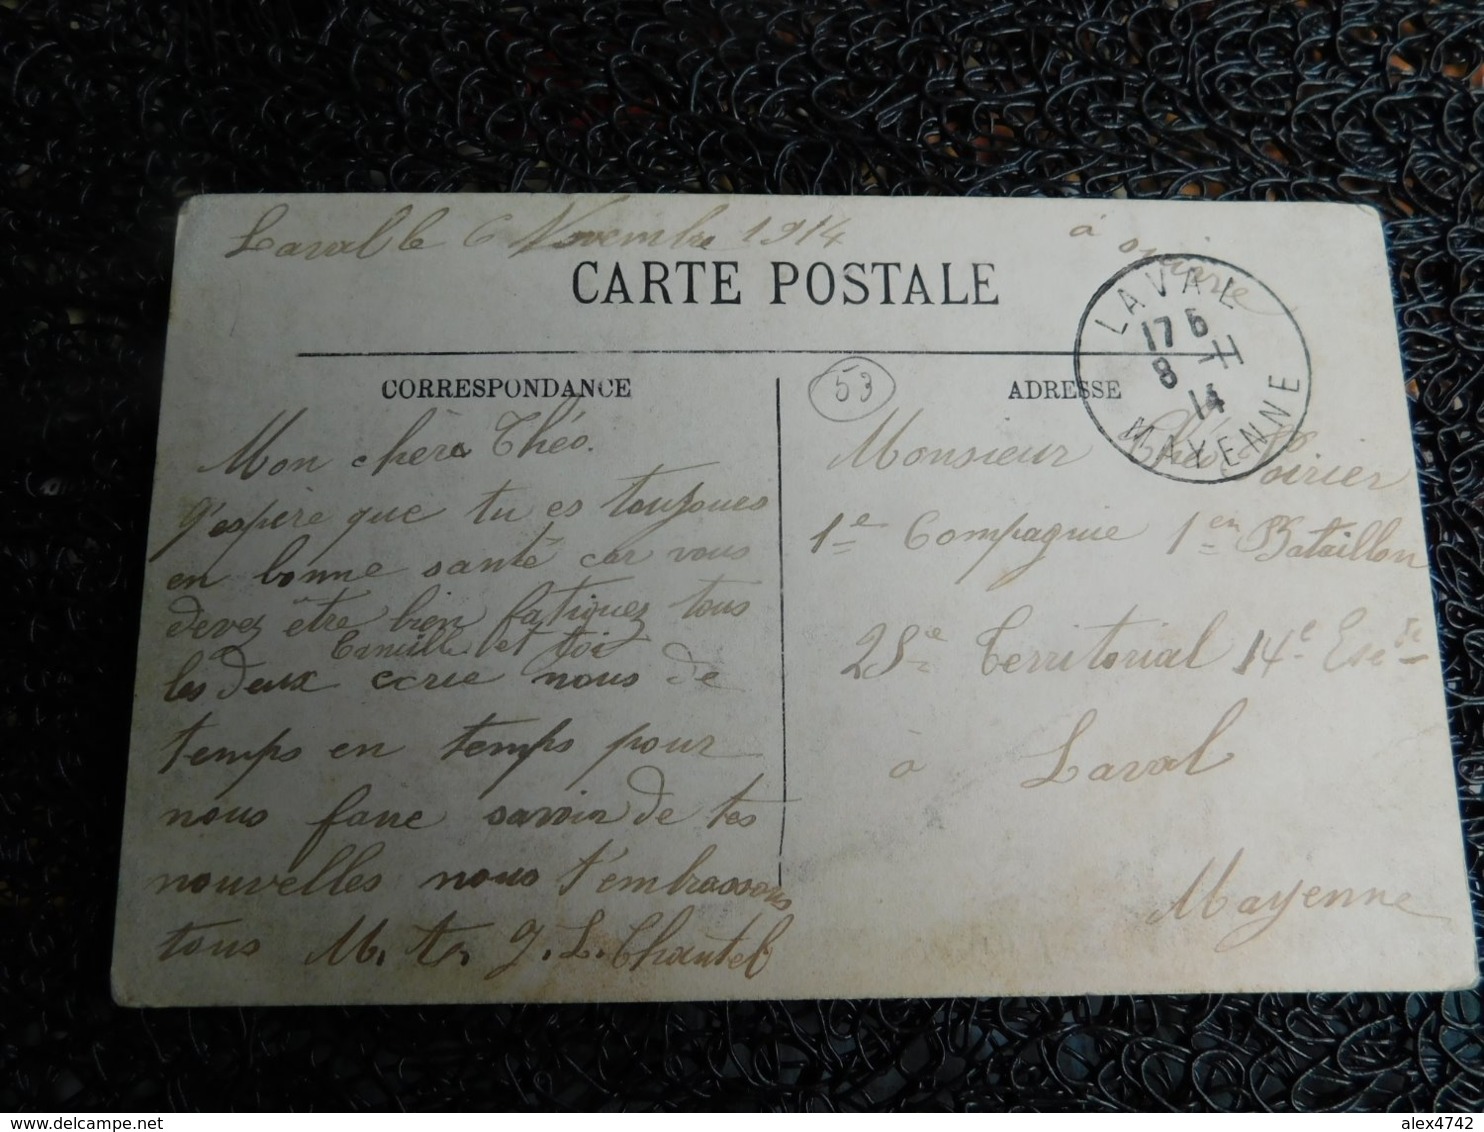 Laval le 6 Novembre 1914
à suivre
CARTE POSTALE
LAVAL
17 5
8 -11
14
MAYENNE
53
CORRESPONDANCE
Mon chère Théo.
J'espère que tu es toujours
en bonne santé car vous
devez être bien fatiguez tous
Camille et toi
les deux ecrie nous de
temps en temps pour
nous faire savoir de tes
nouvelles nous t'embrassons
tous M. T. J. L. Chantel
ADRESSE
Monsieur Théo Poirier
1e Compagnie 1er Bataillon
25e Territorial 14e
à Laval
Mayenne
alex4742